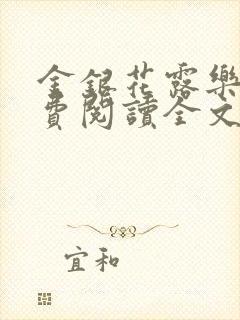 金銀花露樂
費閱讀全文
宜和